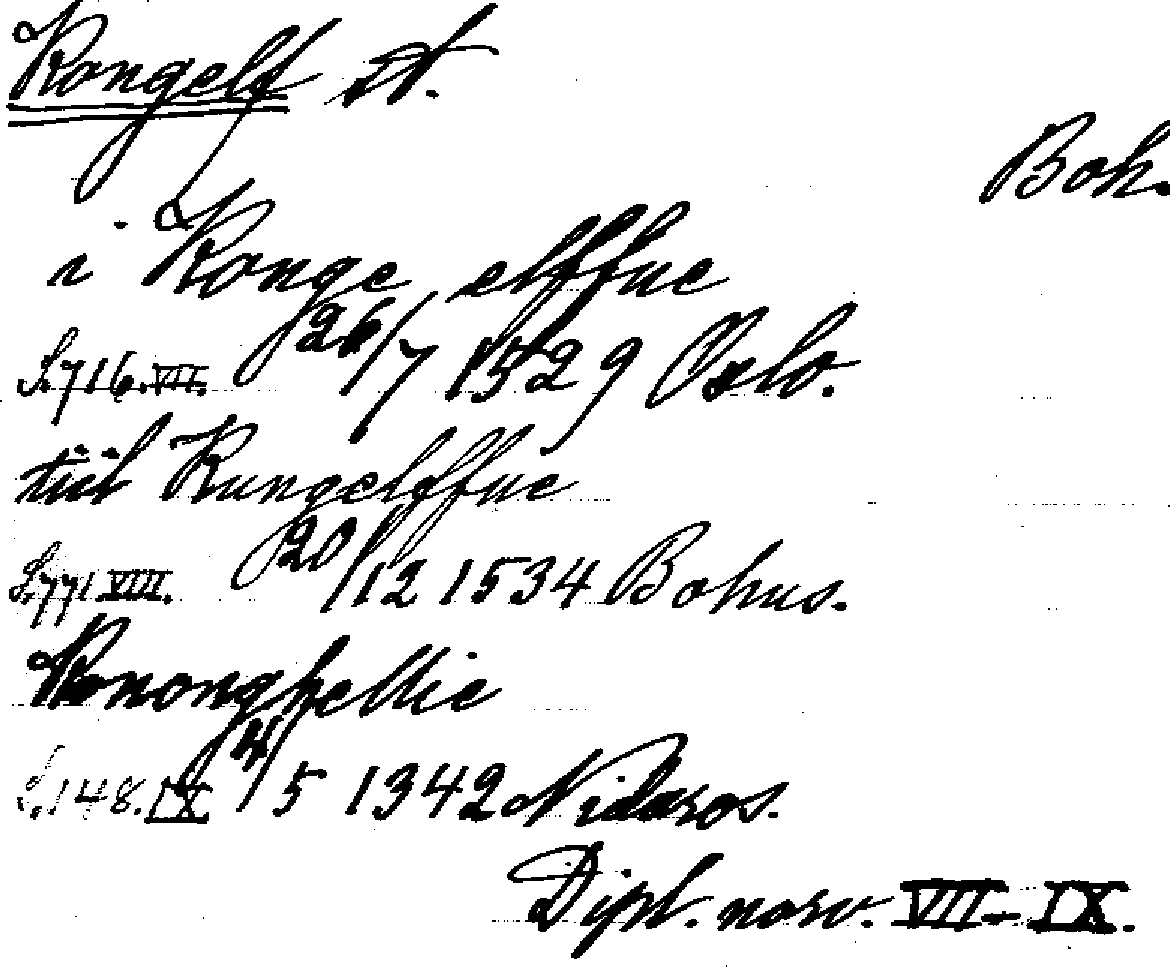 Kongelf st.
Boh.
i Konge elffue
S.716.VII. 26/7 1529 Oslo.
tiil Kungelffue
S.771.VIII. 20/12 1534 Bohus.
Kononghellie
S.148.IX. 4/5 1342 Nidaros.
Dipl. norv. VII-IX.